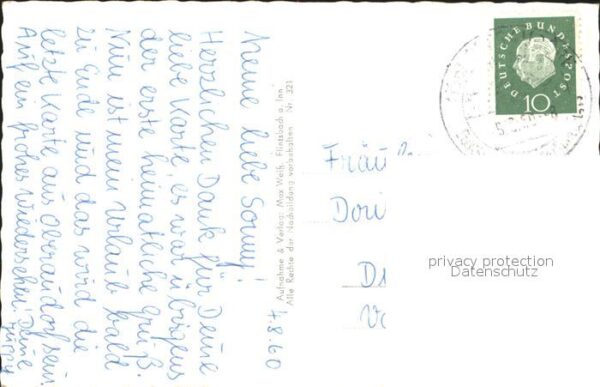 4.8.60
Meine liebe Sonny!
Herzlichen Dank für Deine
liebe Karte, es war übrigens
der erste heimatliche Gruß.
Nun ist mein Urlaub bald
zu Ende und das wird die
letzte Karte aus Oberaudorf sein
Auf ein frohes Wiedersehn! Deine
Aufnahme & Verlag: Max Weiß, Flintsbach a. Inn
Alle Rechte der Nachbildung vorbehalten Nr. 321
DEUTSCHE BUNDESPOST
10
Fräu
Dori
privacy protection
Datenschutz